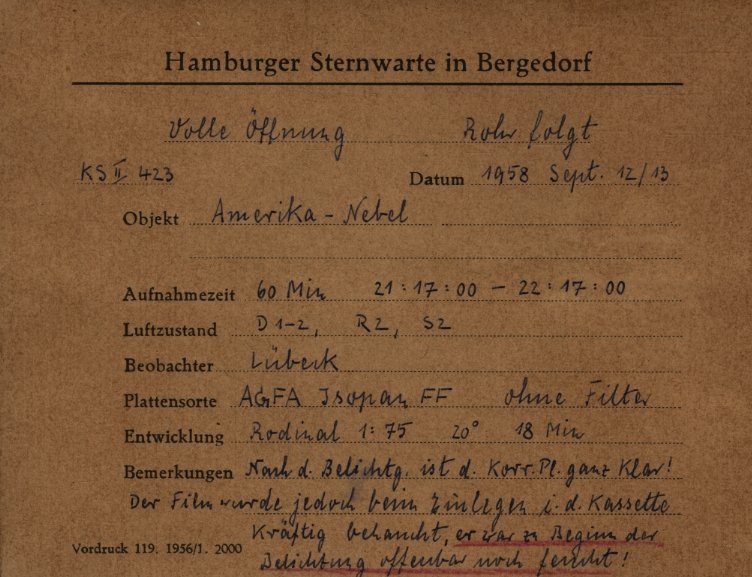 Hamburger Sternwarte in Bergedorf
Volle Öffnung Rohr folgt
KS II 423 Datum 1958 Sept. 12/13
Objekt Amerika-Nebel
Aufnahmezeit 60 Min 21:17:00 – 22:17:00
Luftzustand D 1–2, R2, S2
Beobachter Lübeck
Plattensorte AGFA Isopan FF ohne Filter
Entwicklung Rodinal 1:75 20° 18 Min
Bemerkungen Nach d. Belichtg. ist d. Korr. Pl. ganz klar!
Der Film wurde jedoch beim Einlegen i. d. Kassette
Kräftig behaucht, er war zu Beginn der
Vordruck 119. 1956/1. 2000 Belichtung offenbar noch feucht!